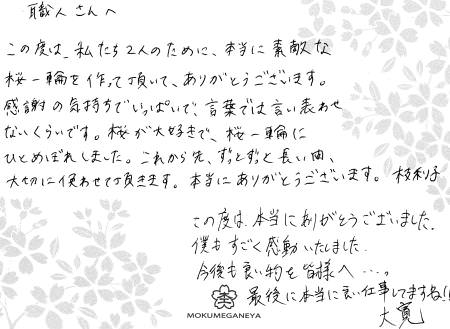 職人さんへ
この度は、私たち2人のために、本当に素敵な
桜一輪を作って頂いて、ありがとうございます。
感謝の気持ちでいっぱいで、言葉では言い表わせ
ないくらいです。桜が大好きで、桜一輪に
ひとめぼれしました。これから先、ずっとずっと長い間、
大切に使わせて頂きます。本当にありがとうございます。 枝利子
この度は、本当にありがとうございました。
僕もすごく感動いたしました。
今後も良い物を皆様へ…。
最後に本当に良い仕事してますね!!
大寛
MOKUMEGANEYA